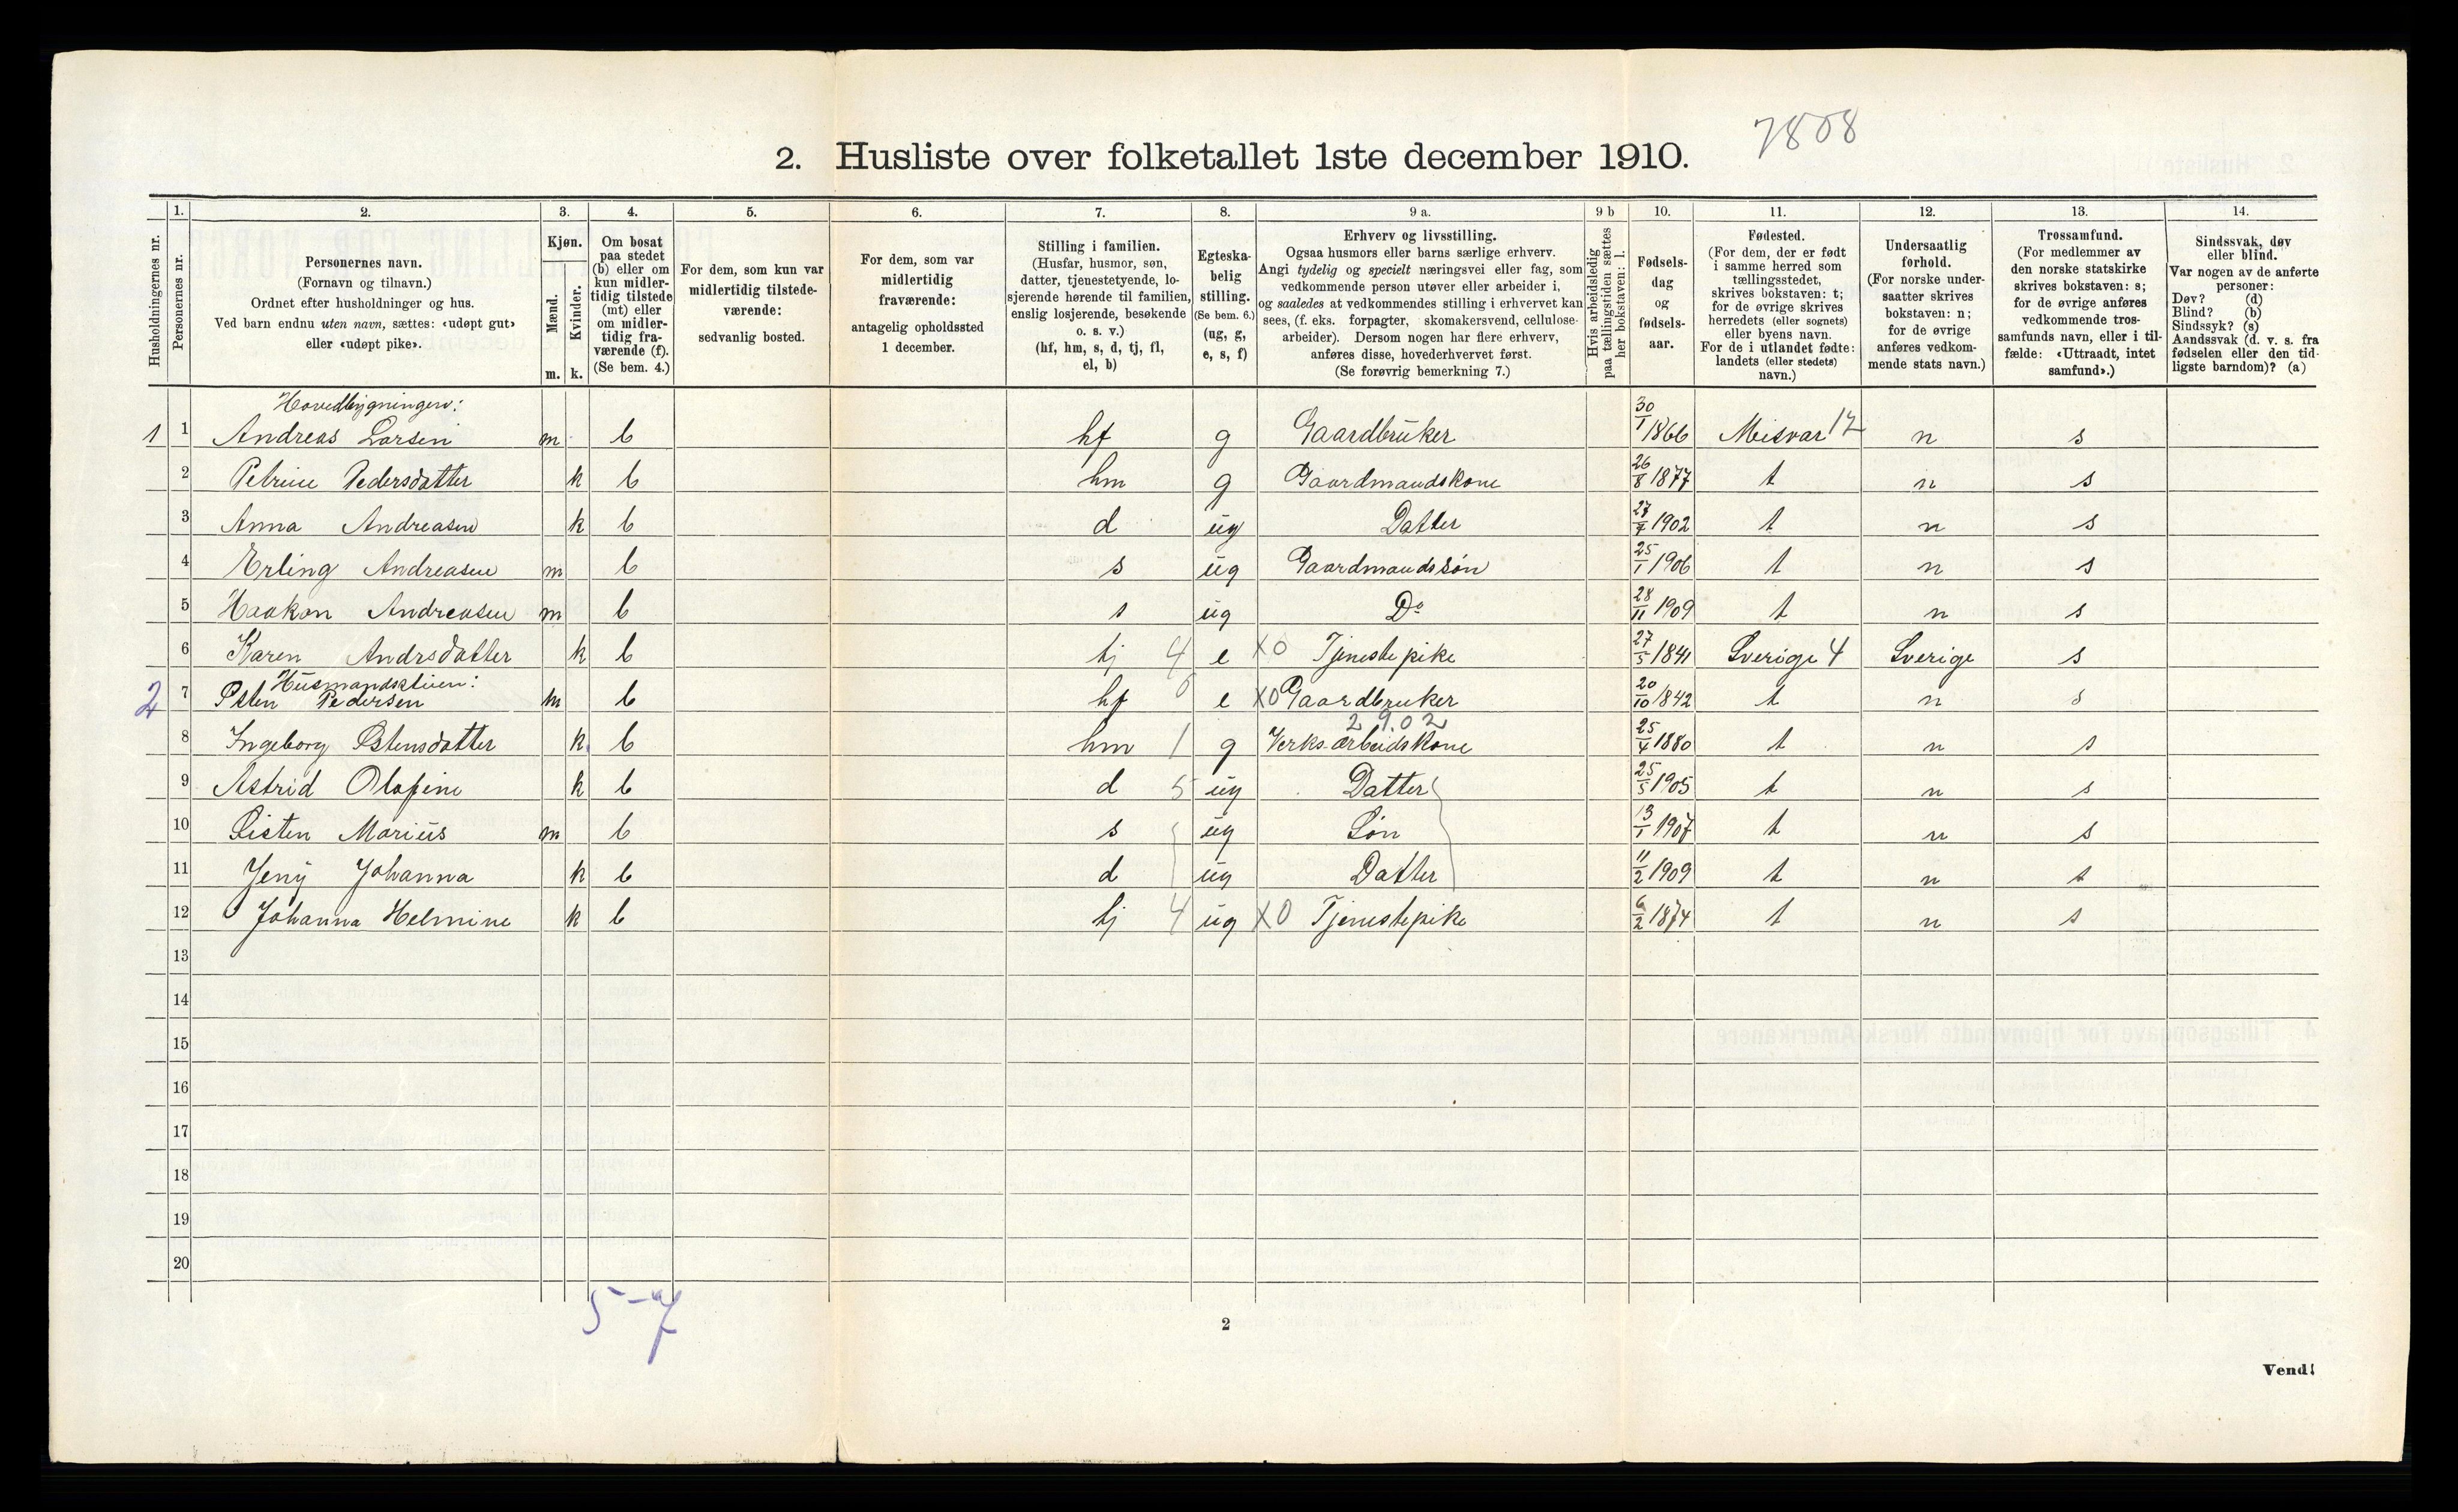 7808
2. Husliste over folketallet 1ste december 1910.
Husholdningernes nr.
1. Personernes nr.
2. Personernes navn.
(Fornavn og tilnavn.)
Ordnet efter husholdninger og hus.
Ved barn endnu uten navn, sættes: «udøpt gut»
eller «udøpt pike».
3. Kjøn.
Mænd. Kvinder.
m. k.
4. Om bosat
paa stedet
(b) eller om
kun midler-
tidig tilstede
(mt) eller
om midler-
tidig fra-
værende (f).
(Se bem. 4.)
5. For dem, som kun var
midlertidig tilstede-
værende:
sedvanlig bosted.
6. For dem, som var
midlertidig
fraværende:
antagelig opholdssted
1 december.
7. Stilling i familien.
(Husfar, husmor, søn,
datter, tjenestetyende, lo-
sjerende hørende til familien,
enslig losjerende, besøkende
o. s. v.)
(hf, hm, s, d, tj, fl,
el, b)
8. Egteska-
belig
stilling.
(Se bem. 6.)
(ug, g,
e, s, f)
9 a. Erhverv og livsstilling.
Ogsaa husmors eller barns særlige erhverv.
Angi tydelig og specielt næringsvei eller fag, som
vedkommende person utøver eller arbeider i,
og saaledes at vedkommendes stilling i erhvervet kan
sees, (f. eks. forpagter, skomakersvend, cellulose-
arbeider). Dersom nogen har flere erhverv,
anføres disse, hovederhvervet først.
(Se forøvrig bemerkning 7.)
9 b Hvis arbeidsledig
paa tællingstiden sættes
her bokstaven: l.
10. Fødsels-
dag
og
fødsels-
aar.
11. Fødested.
(For dem, der er født
i samme herred som
tællingsstedet,
skrives bokstaven: t;
for de øvrige skrives
herredets (eller sognets)
eller byens navn.
For de i utlandet fødte:
landets (eller stedets)
navn.)
12. Undersaatlig
forhold.
(For norske under-
saatter skrives
bokstaven: n;
for de øvrige
anføres vedkom-
mende stats navn.)
13. Trossamfund.
(For medlemmer av
den norske statskirke
skrives bokstaven: s;
for de øvrige anføres
vedkommende tros-
samfunds navn, eller i til-
fælde: «Uttraadt, intet
samfund».)
14. Sindssvak, døv
eller blind.
Var nogen av de anførte
personer:
Døv? (d)
Blind? (b)
Sindssyk? (s)
Aandssvak (d. v. s. fra
fødselen eller den tid-
ligste barndom)? (a)
Hovedbygningen:
1 1 Andreas Larsen m b hf g Gaardbruker 30/1 1866 Misvær 12 n s
2 Petrine Pedersdatter k b hm g Gaardmandskone 26/8 1877 t n s
3 Anna Andreasen k b d ug Datter 27/7 1902 t n s
4 Erling Andreasen m b s ug Gaardmandssøn 25/1 1906 t n s
5 Haakon Andreasen m b s ug Do 28/11 1909 t n s
6 Karen Andrsdatter k b tj 4 e X0 Tjenestepike 27/5 1841 Sverige 4 Sverige s
Husmandsstuen:
2 7 Østen Pedersen m b hf 6 e X0 Gaardbruker 20/10 1842 t n s
2 9.02
8 Ingeborg Østensdatter k b hm 1 g Verks-arbeidskone 25/4 1880 t n s
9 Astrid Olafine k b d 5 ug Datter 25/5 1905 t n s
10 Øisten Marius m b s ug Søn 13/1 1907 t n s
11 Jeny Johanna k b d ug Datter 11/2 1909 t n s
12 Johanna Helmine k b tj 4 ug X0 Tjenestepike 6/2 1874 t n s
13
14
15
16
17
18
19
20
5-7
2
Vend!